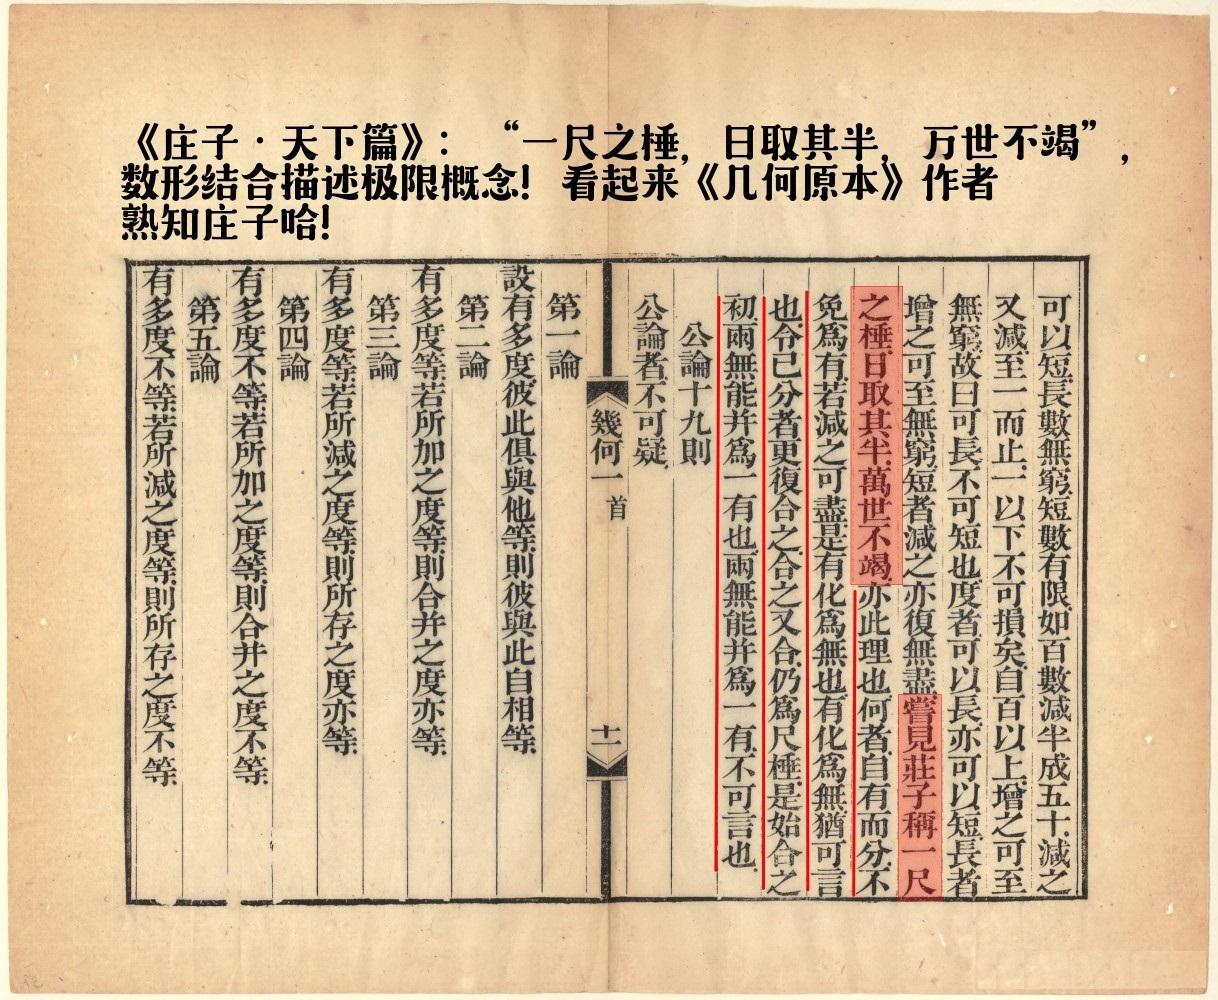 《庄子·天下篇》：“一尺之棰，日取其半，万世不竭”，
数形结合描述极限概念！看起来《几何原本》作者
熟知庄子哈！
可以短長數無窮短數有限如百數減半成五十減之
又減至一而止一以下不可損矣自百以上增之可至
無窮故曰可長不可短也度者可以長亦可以短長者
增之可至無窮短者減之亦復無盡嘗見莊子稱一尺
之棰日取其半萬世不竭亦此理也何者自有而分不
免爲有若減之可盡是有化爲無也有化爲無猶可言
也令已分者更復合之合之又合仍爲尺棰是始合之
初兩無能并爲一有也兩無能并爲一有不可言也
公論十九則
公論者不可疑
幾何一 首
十一
第一論
設有多度彼此俱與他等則彼與此自相等
第二論
有多度等若所加之度等則合并之度亦等
第三論
有多度等若所減之度等則所存之度亦等
第四論
有多度不等若所加之度等則合并之度不等
第五論
有多度不等若所減之度等則所存之度不等